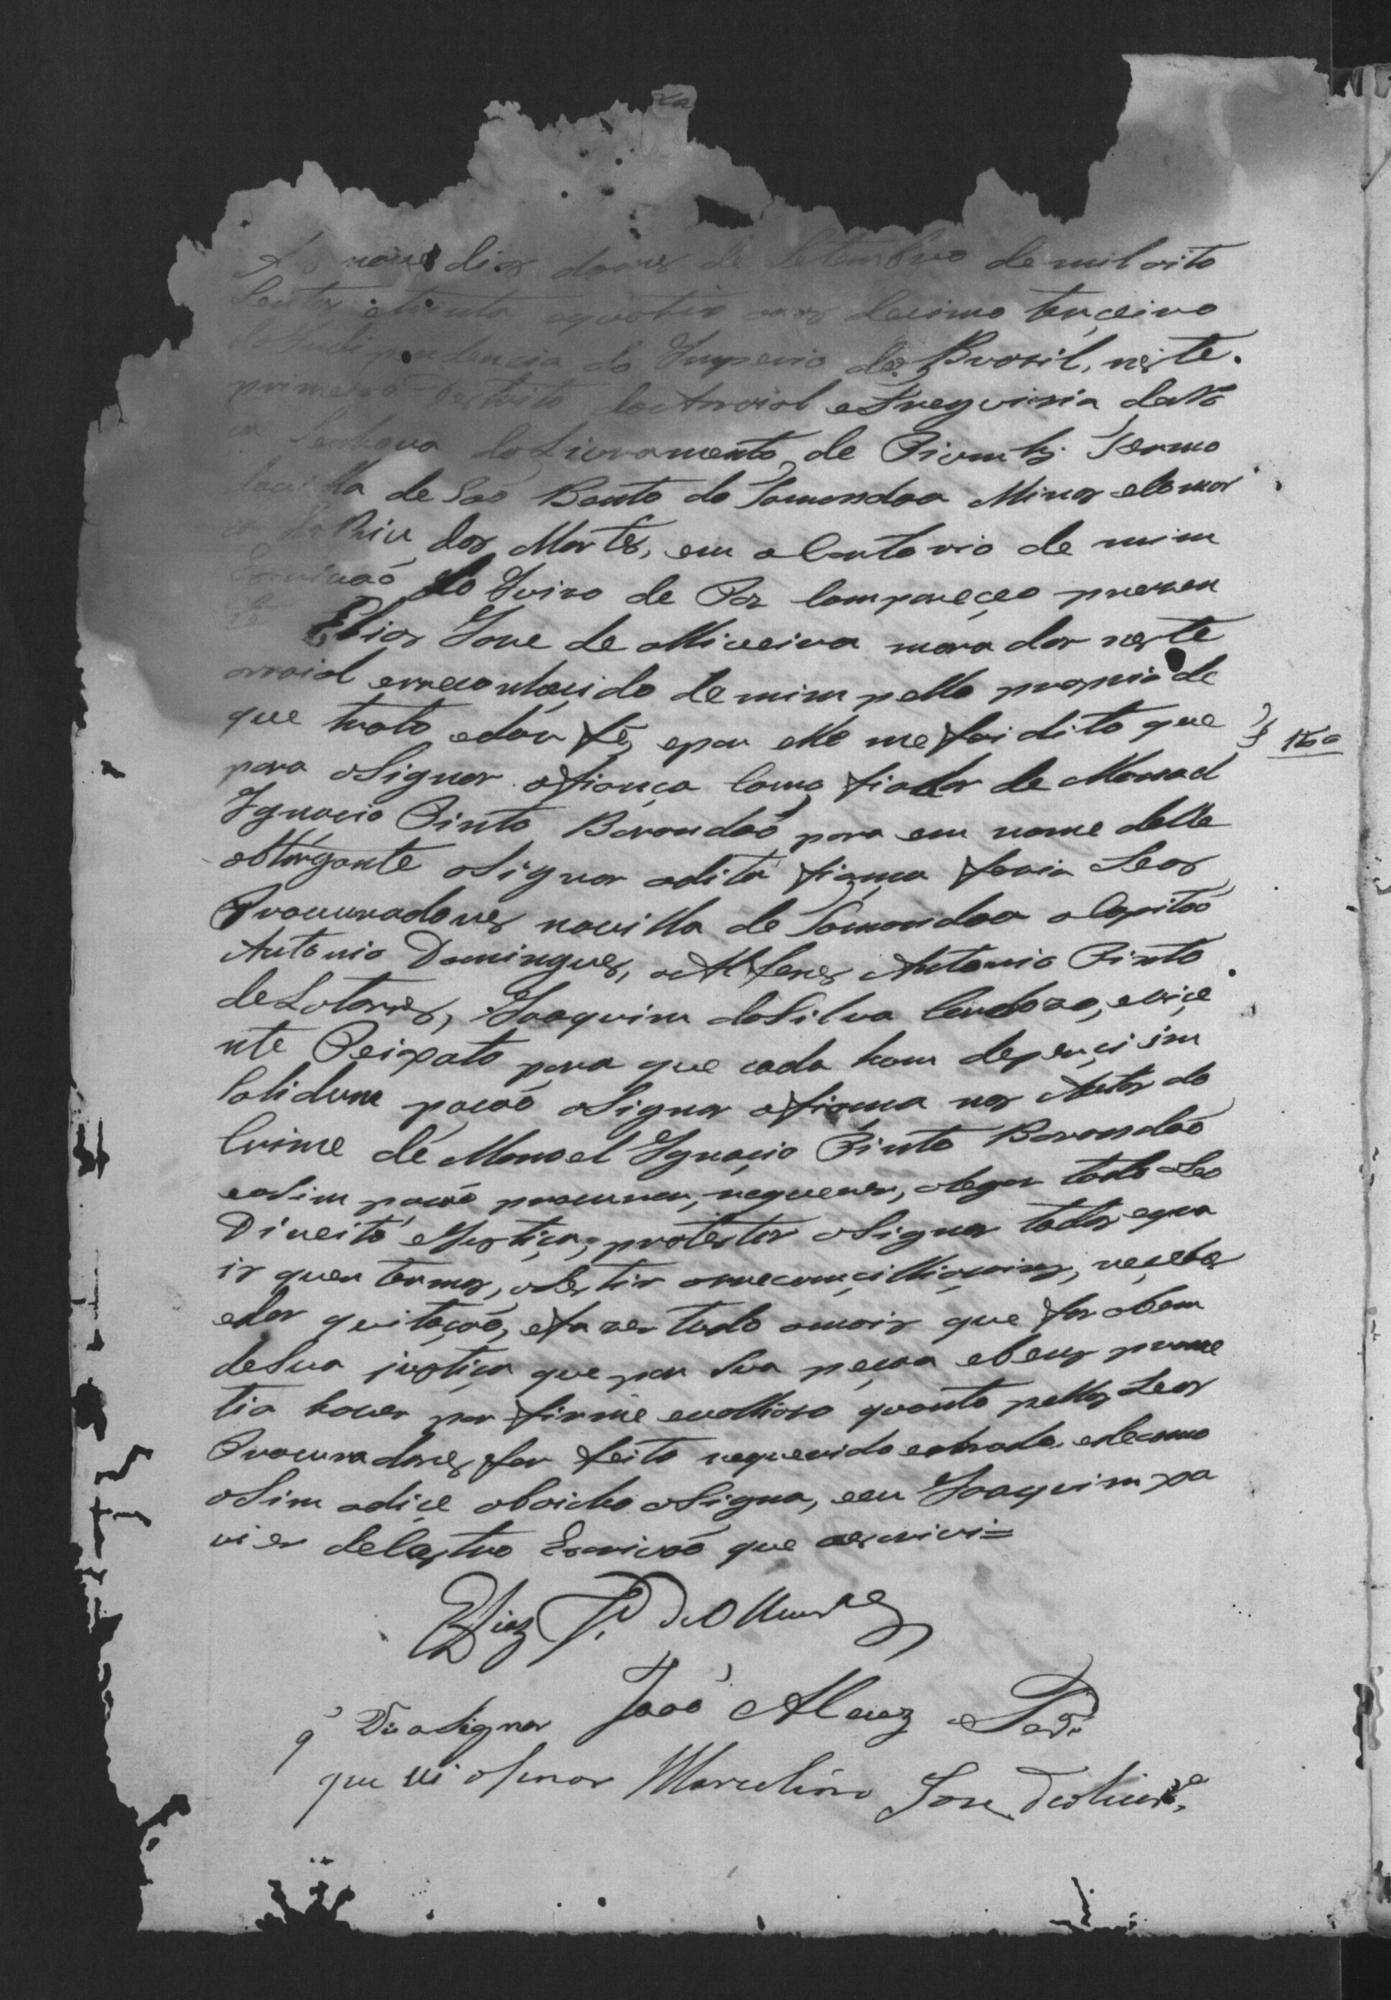 Aos nove dias do mes de Setembro de mil oito
Centos etrinta equatro anos decimo terceiro
da Independencia do Imperio do Brasil, neste
primeiro Destrito do Arraial eFreguizia de No
Senhora do Livramento de Piumhi Termo
davilla de Saõ Bento do Tamandoa Minas eComar
Rio das Mortes, em o Cartorio de mim
Escrivaõ do Juizo de Paz Compareçeo prezen
te Elias Joze de oLiveira morador neste
arraial erreconhecido de mim pello proprio de
que trato edou fé, epor elle me foi dito que
para aSignar afiança Como fiador de Manoel
Ignacio Pinto Barandaõ para em nome delle
obtorgante aSignar adita fiança fazia Seos
Procuradores navilla de Tamandoa oCapitaõ
Antonio Domingues, oAlferes Antonio Pinto
de Joaquim daSilva Cardozo, evice
nte Peixoto para que cada hum deperçi im
Solidum paçaõ aSignar afiança nos Autos do
Crime de Manoel Ignacio Pinto Barandaõ
easim paçaõ procurar, requerer, alegar todo Seo
Direito eJustiça, protestar aSignar todos equa
is quer termos, reçeber
edar quitaçaõ, efazer tudo omais que for abem
deSua justiça que por Sua peçoa ebens prome
tia haver por firme evallioso quanto pellos Seos
Procuradores for feito requerido edecomo
aSim adiçe abaicho aSigna, eeu Joaquim xa
vier deCastro Escrivaõ que oescrivi=
Elias Je de Olivra
q Vi aSignar Joaõ Alvez
que vi aSinar Marcelino Joze deolivra